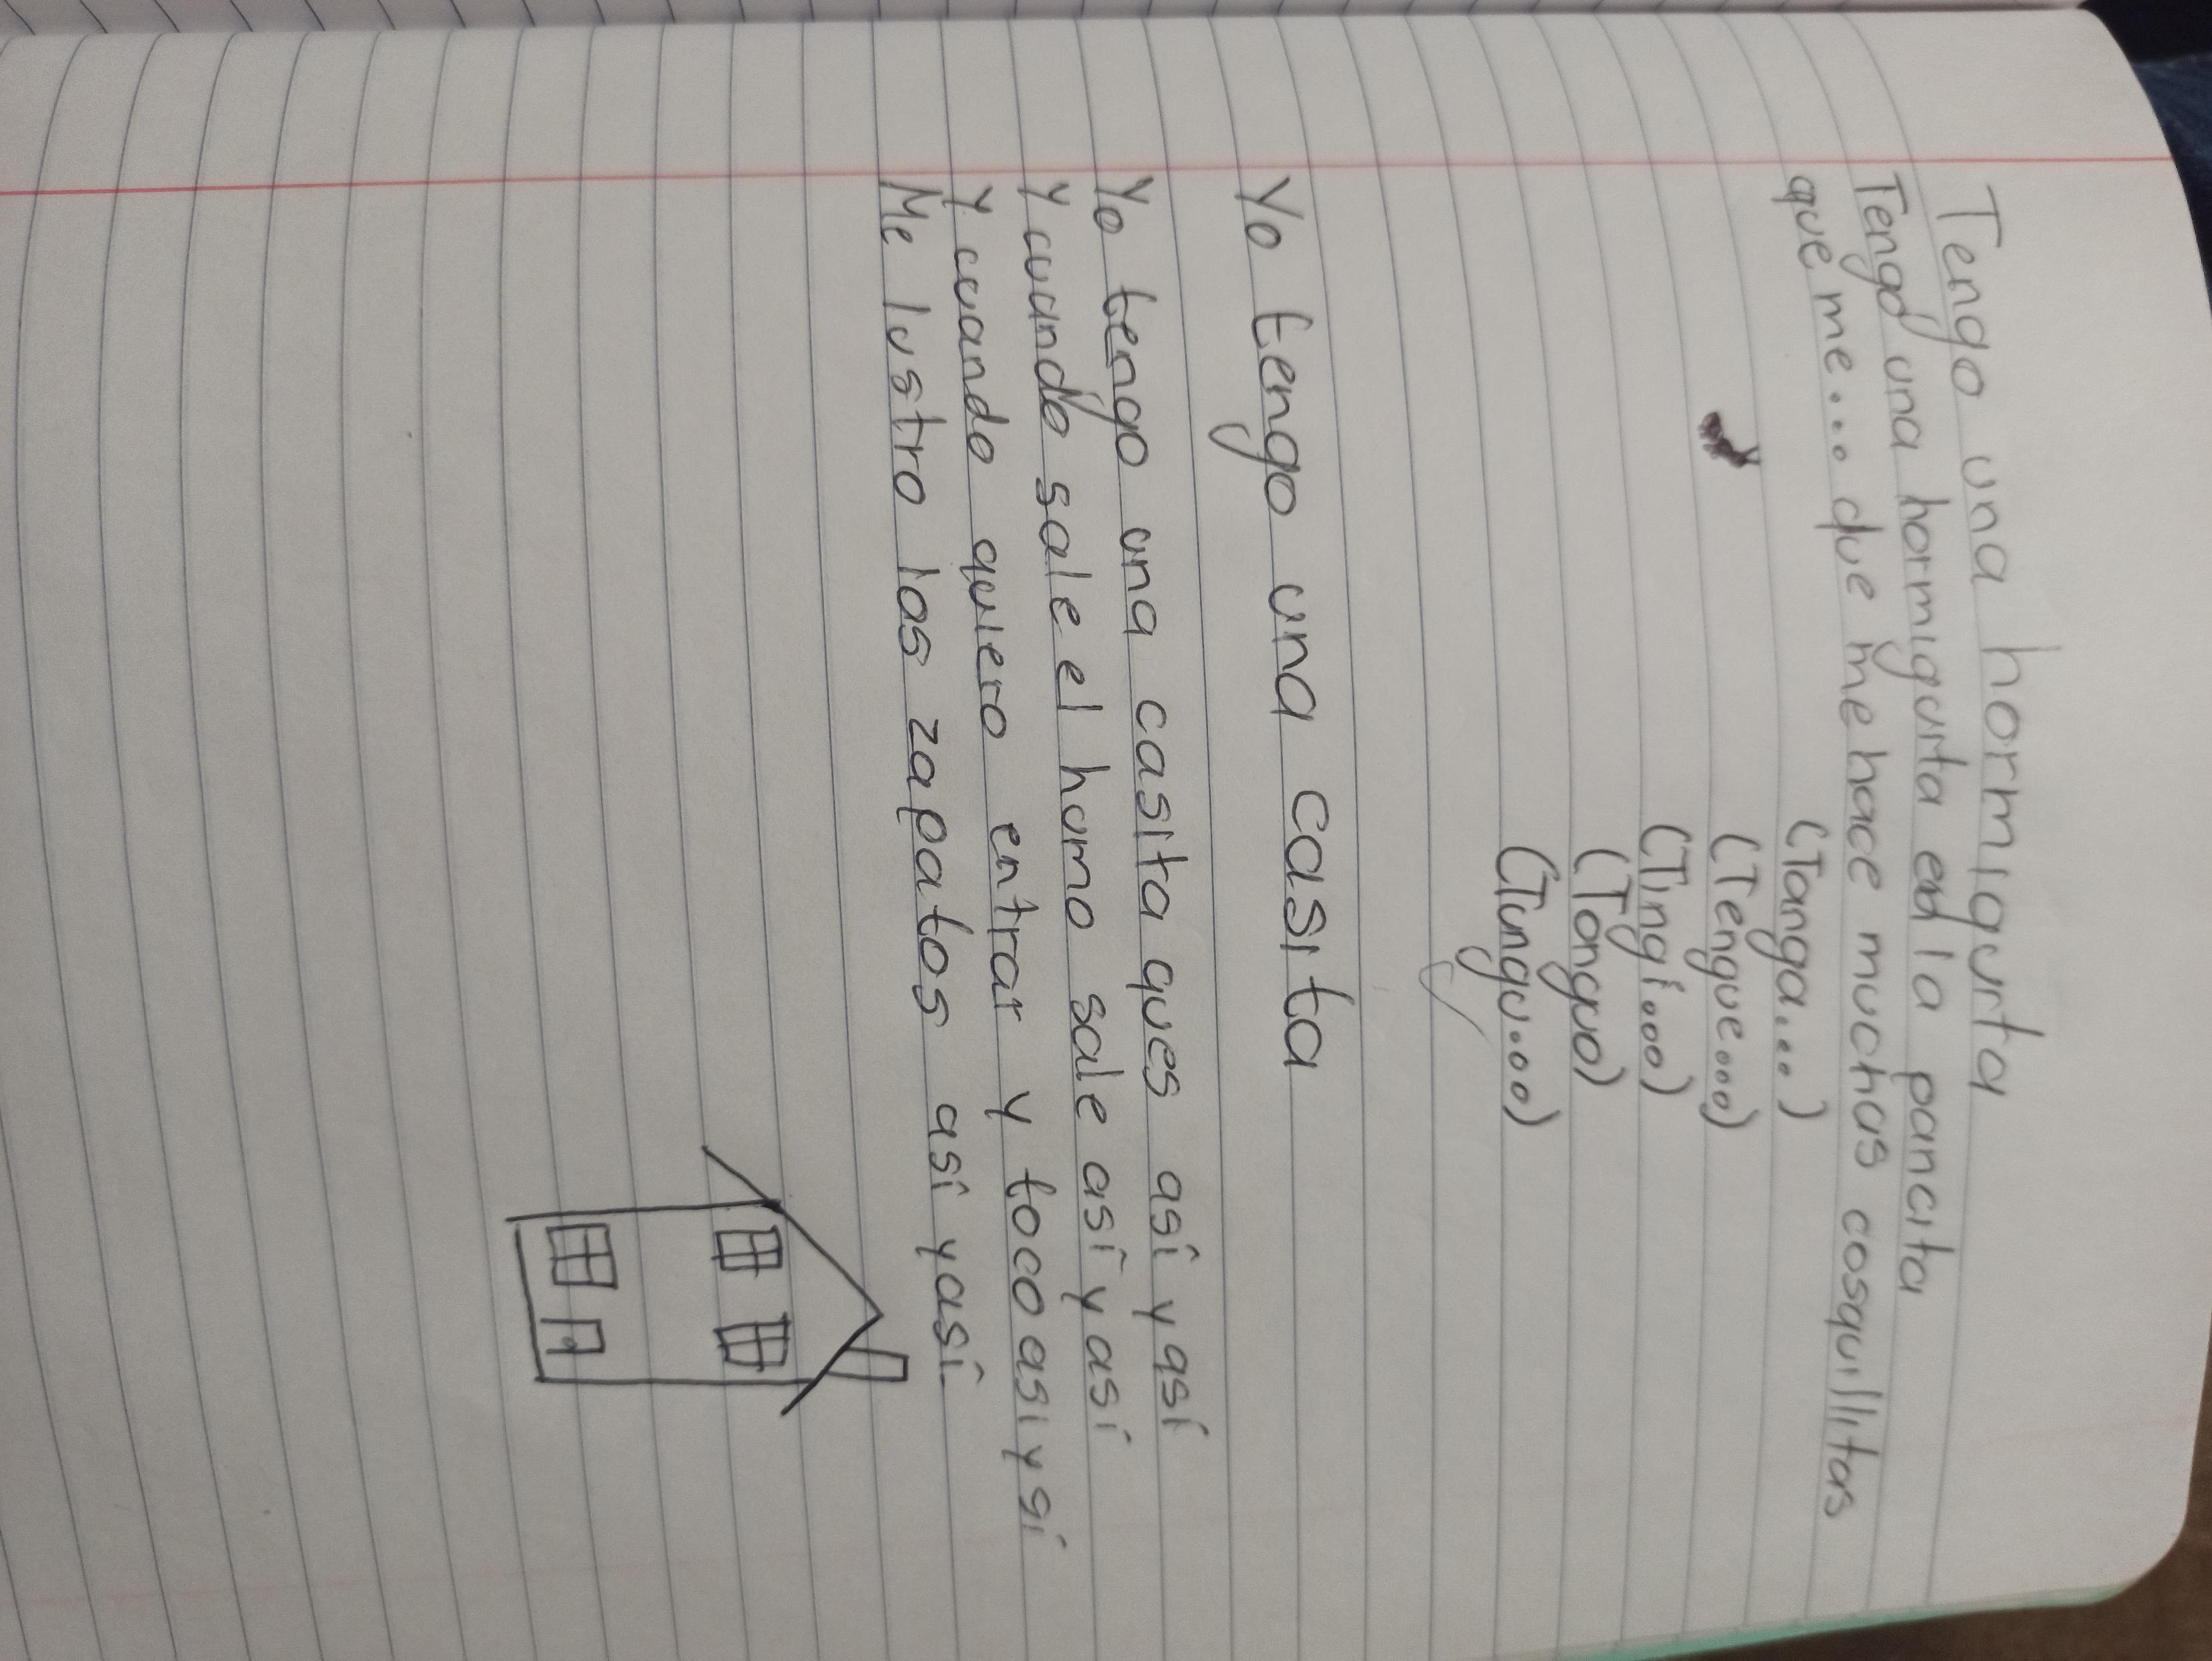 Tengo una hormiguita
Tengo una hormiguita en la pancita
que me.... que me hace muchas cosquillitas
(Tanga....)
(Tengue....)
(Tingi....)
(Tonguo)
(Tungu....)
Yo tengo una casita
Yo tengo una casita ques así y así
Y cuando sale el humo sale así y así
Y cuando quiero entrar y toco asi y si
Me lustro los zapatos así y así.